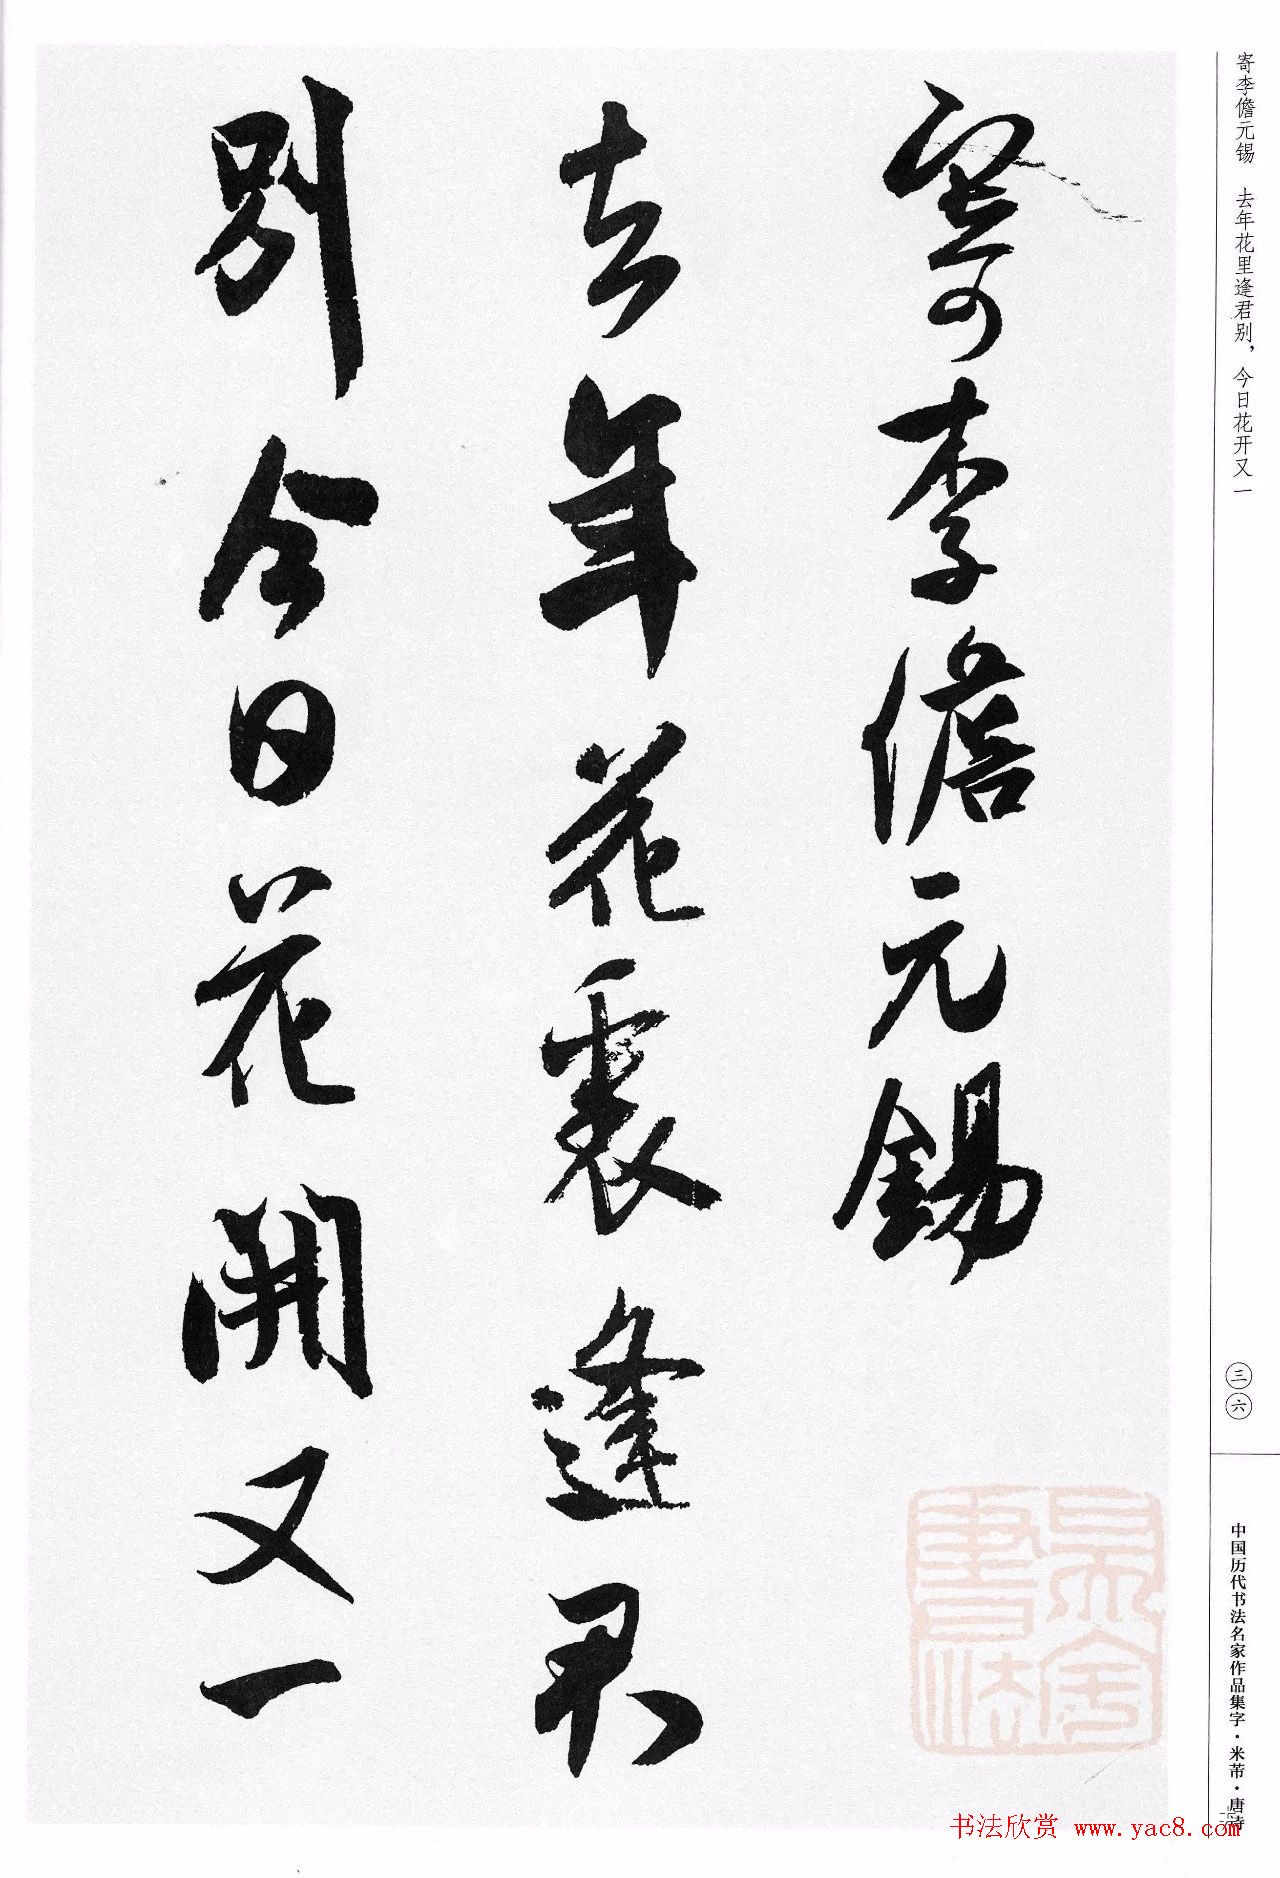 寄李儋元锡　去年花里逢君别，今日花开又一
寄李儋元錫
去年花裏逢君
别今日花開又一
三六
中国历代书法名家作品集字·米芾·唐诗
书法欣赏 www.yac8.com